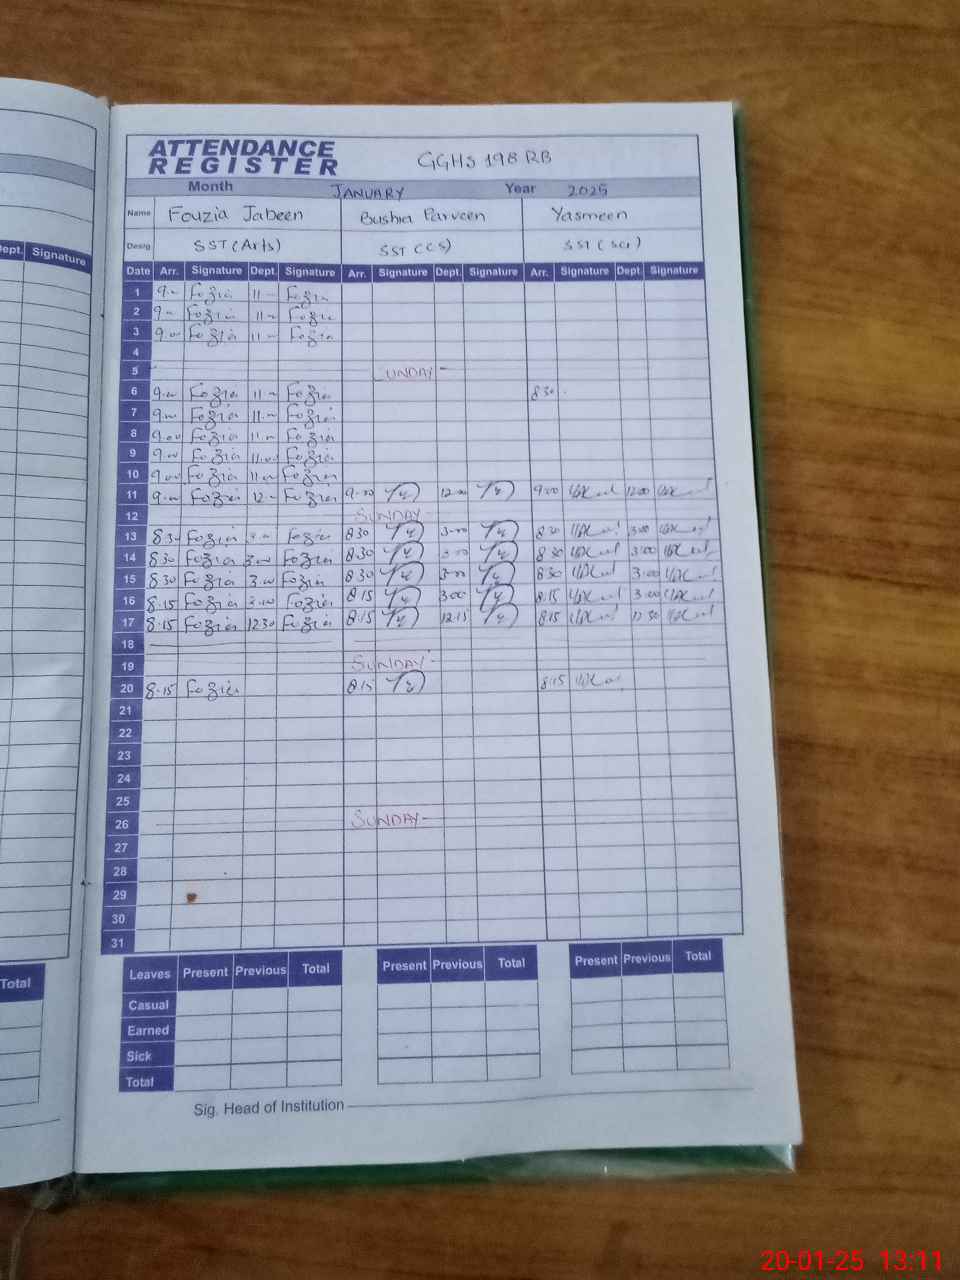 ATTENDANCE
REGISTER
GGHS 198 RB
Month JANUARY Year 2025
Name Fouzia Jabeen Bushra Parveen Yasmeen
Desig SST (Arts) SST (CS) SST (Sci)
ept. Signature
Date Arr. Signature Dept. Signature Arr. Signature Dept. Signature Arr. Signature Dept. Signature
1 9 Fozia 11 Fozia
2 9 Fozia 11 Fozia
3 9.00 Fozia 11 Fozia
4
5 SUNDAY
6 9.00 Fozia 11 Fozia 830
7 9.00 Fozia 11 Fozia
8 9.00 Fozia 11 Fozia
9 9.00 Fozia 11.00 Fozia
10 9.00 Fozia 11.00 Fozia
11 9.00 Fozia 12 Fozia 9.00 12.00 9.00 12.00
12 SUNDAY
13 8.30 Fozia 3.00 Fozia 8.30 3.00 8.30 3.00
14 8.30 Fozia 3.00 Fozia 8.30 3.00 8.30 3.00
15 8.30 Fozia 3.00 Fozia 8.30 3.00 8.30 3.00
16 8.15 Fozia 3.00 Fozia 8.15 3.00 8.15 3.00
17 8.15 Fozia 1230 Fozia 8.15 12.15 8.15
18
19 SUNDAY
20 8.15 Fozia 8.15 8.15
21
22
23
24
25
26 SUNDAY
27
28
29
30
31
Total
Leaves Present Previous Total Present Previous Total Present Previous Total
Casual
Earned
Sick
Total
Sig. Head of Institution
20-01-25 13:11